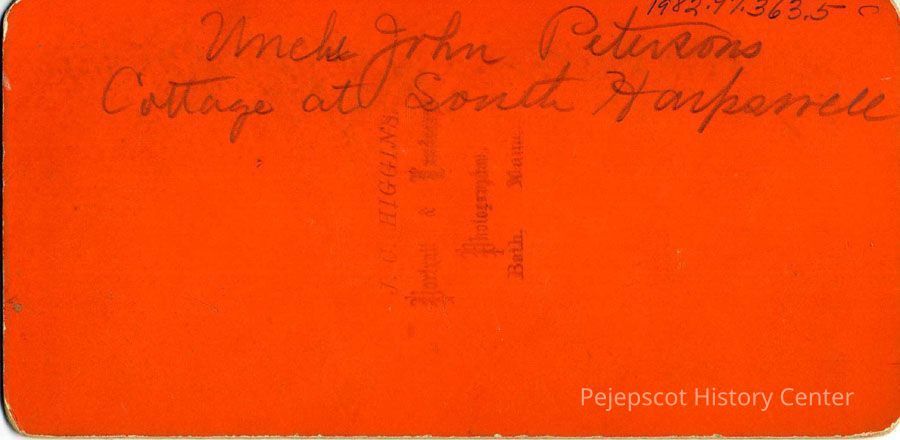 1982.97.363.5
Uncle John Petersons
Cottage at South Harpswell
J. C. HIGGINS,
Portrait &
Photographer,
Bath, Maine.
Pejepscot History Center